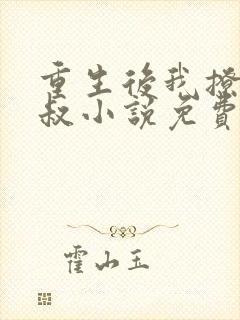 重生後我撩
叔小說免費
霍山玉